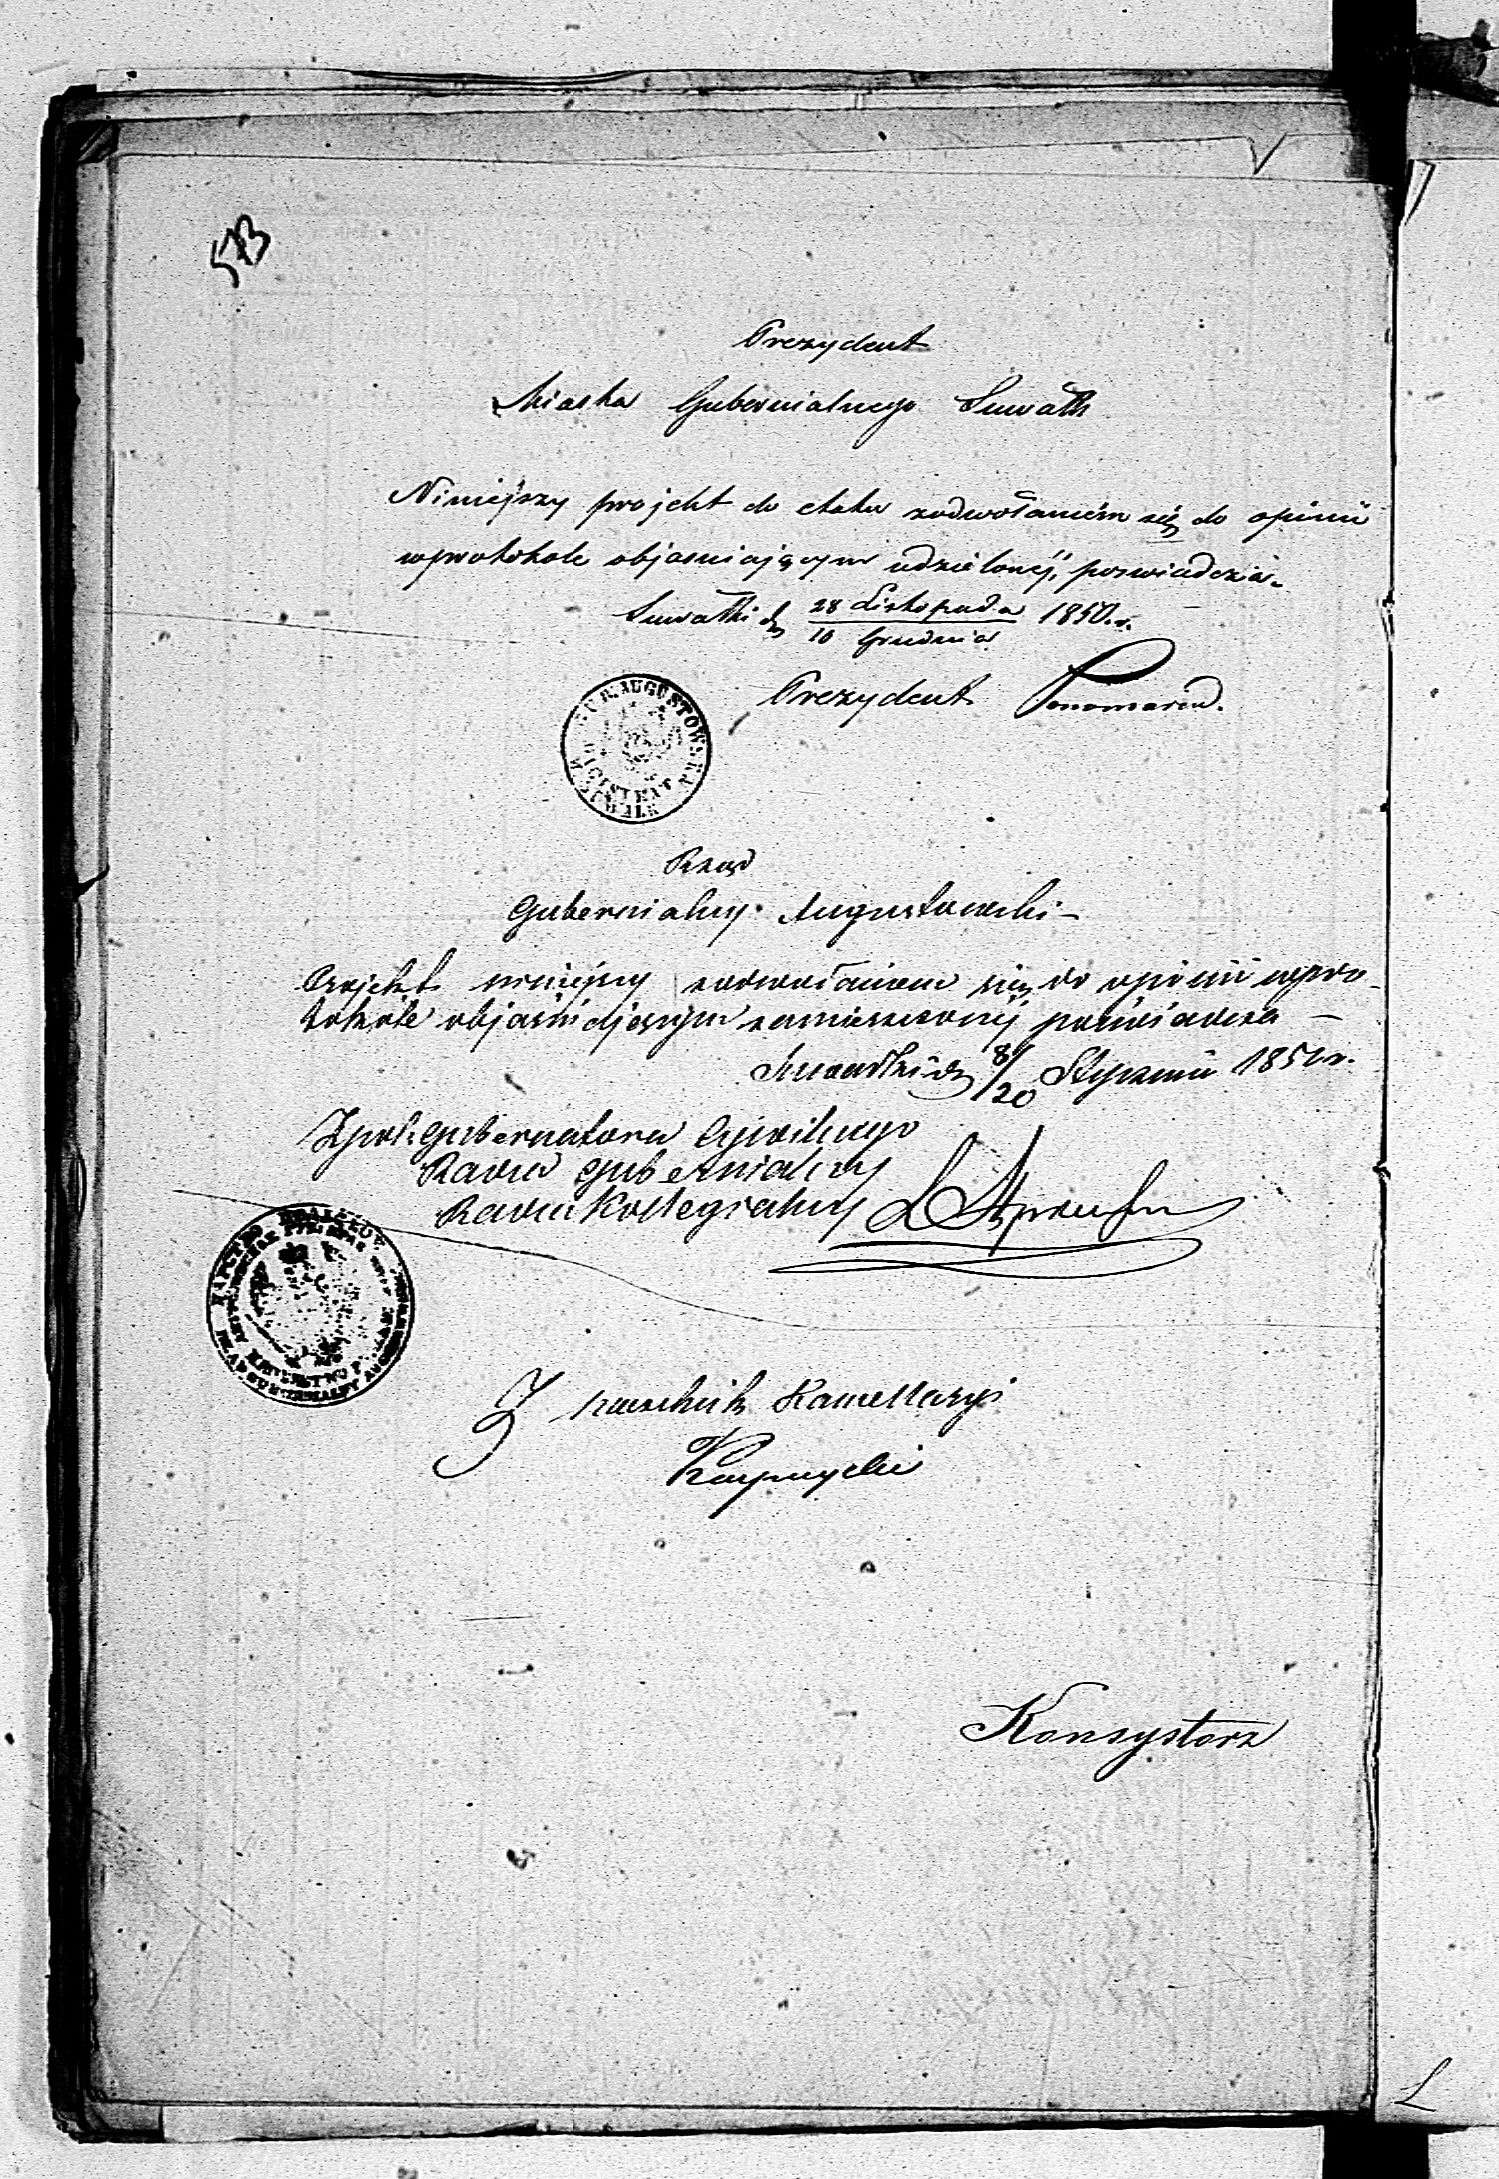 573
Prezydent
Miasta Gubernialnego Suwałk
Niniejszy projekt do etatu zodwołaniem się do opinii
wprotokole objasniającym udzielonéj, poswiadcza.
Suwałki d. 28 Listopada / 10 Grudnia 1850. r.
Prezydent Ponomarew.
GUB. AUGUSTOWSKA
MAGISTRAT M. SUWAŁK
Rząd
Gubernialny Augustowski
Projekt niniejszy zodwołaniem się do opinii wpro-
tokóle objaśniającym zamieszczonéj poświadcza
Suwałki d. 8/20 Stycznia 1851 r.
Gubernatora Cywilnego
Radca Gubernialny
Radca Kollegialny
KRÓLESTWO POLSKIE
RZĄD GUBERNIALNY AUGUSTOWSKI
Naczelnik Kancellaryi
Konsystorz